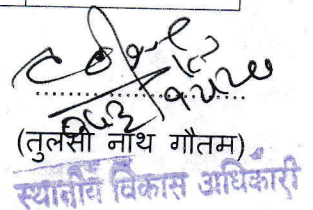 (तुलसी नाथ गौतम)
स्थानीय विकास अधिकारी